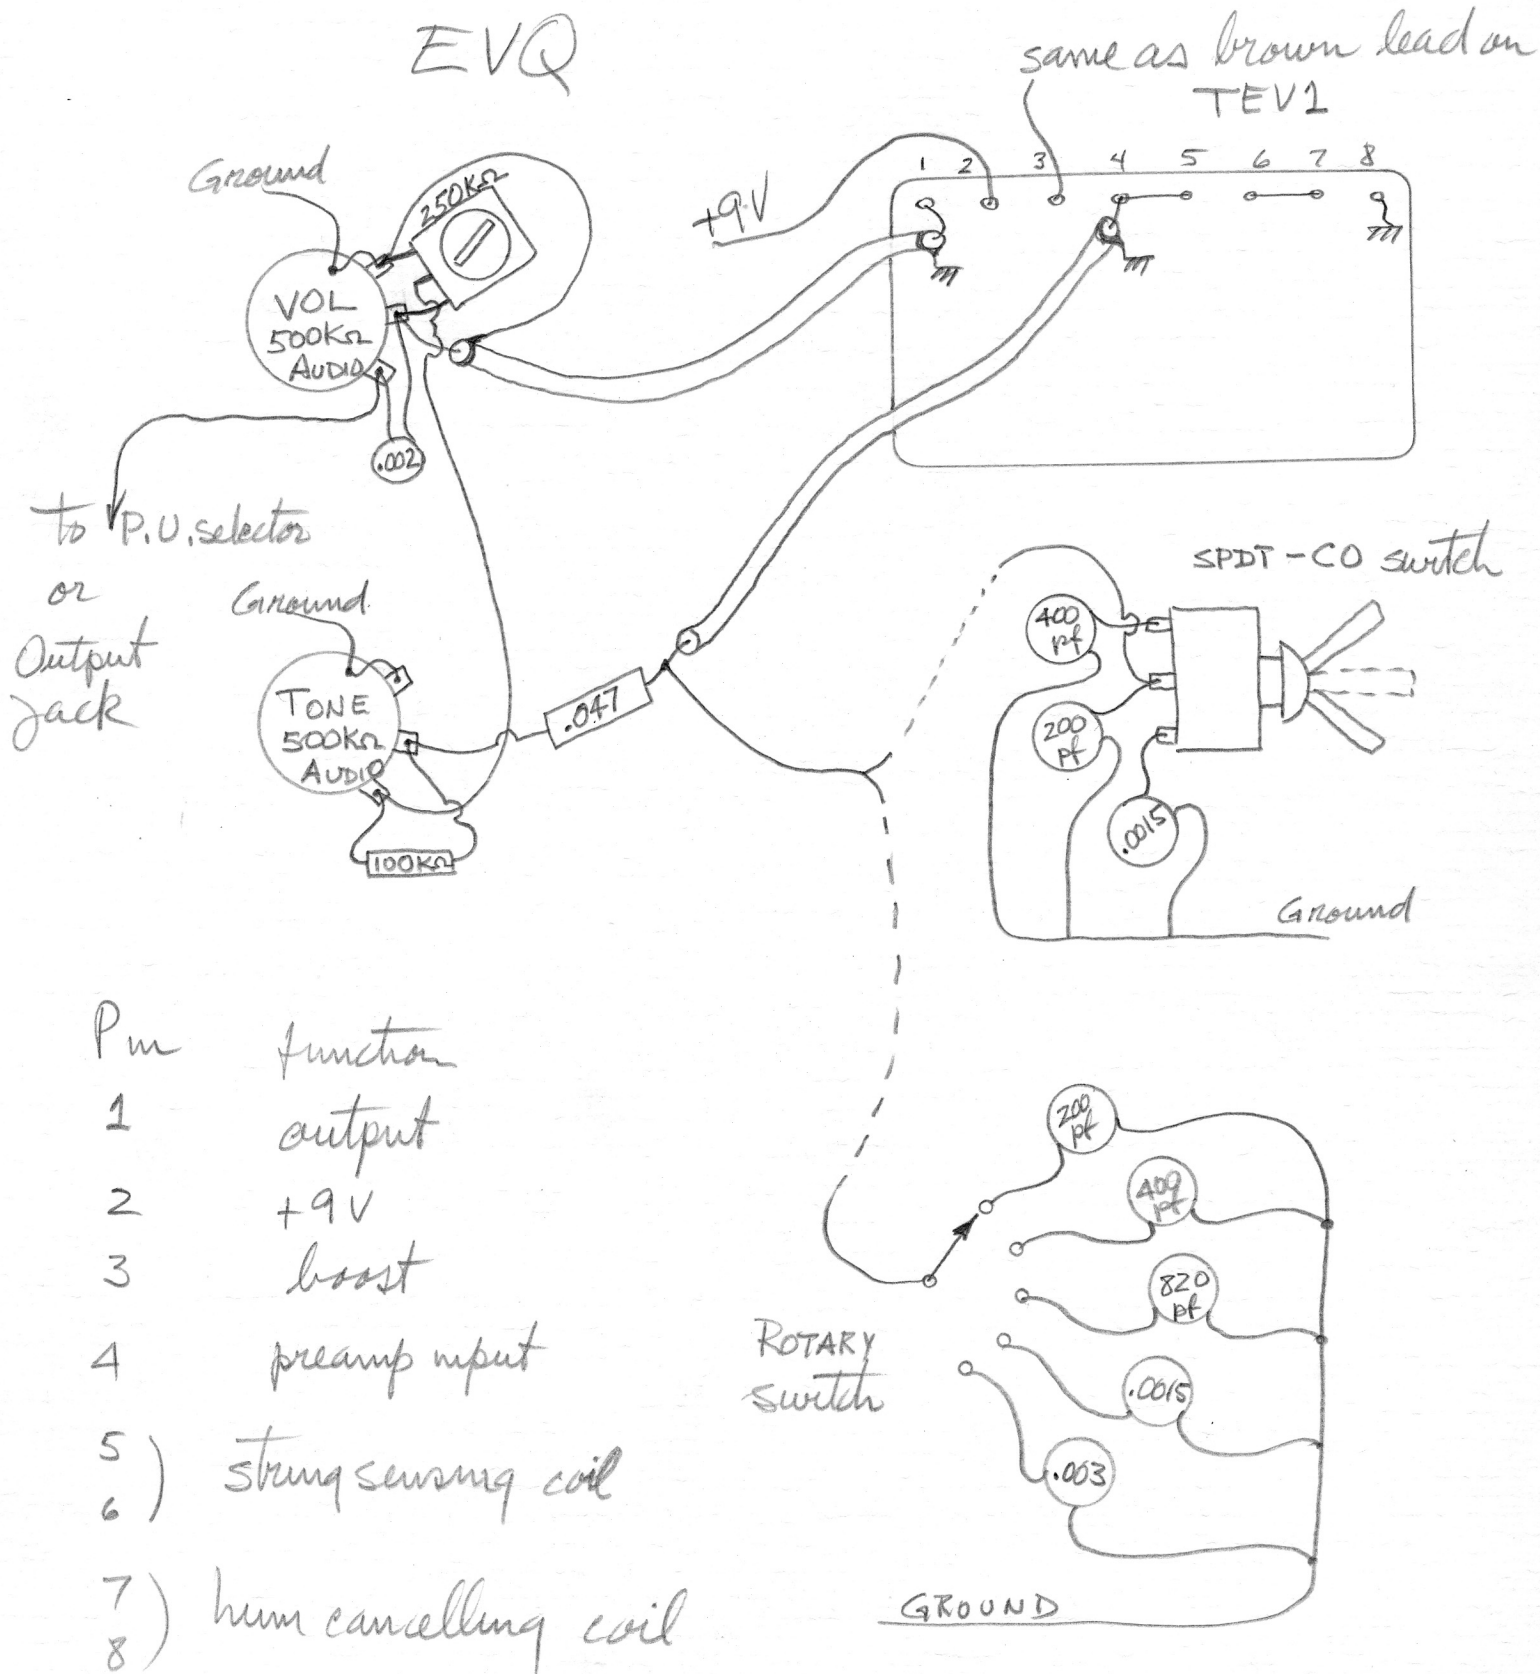 EVQ
same as brown lead on
TEV1
Ground
250KΩ
+9V
1 2 3 4 5 6 7 8
VOL
500KΩ
AUDIO
.002
to P.U. selector
or
Output
jack
Ground
TONE
500KΩ
AUDIO
.047
100KΩ
SPDT-CO switch
400
pf
200
pf
.0015
Ground
Pin function
1 output
2 +9V
3 boost
4 preamp input
5
6
) string sensing coil
7
8
) hum cancelling coil
ROTARY
switch
200
pf
400
pf
820
pf
.0015
.003
GROUND